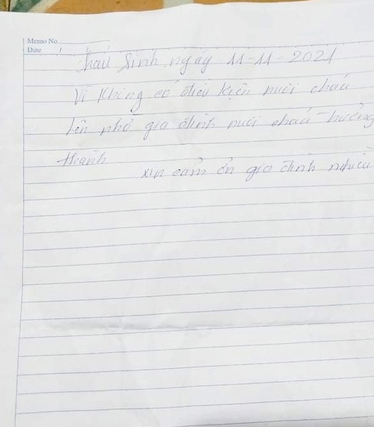 Memo No.
Date /
Cháu Sinh ngày 11-11-2021
Vì không có điều kiện nuôi cháu
lên nhờ gia đình nuôi cháu trưởng
thành
xin cảm ơn gia đình nhiều